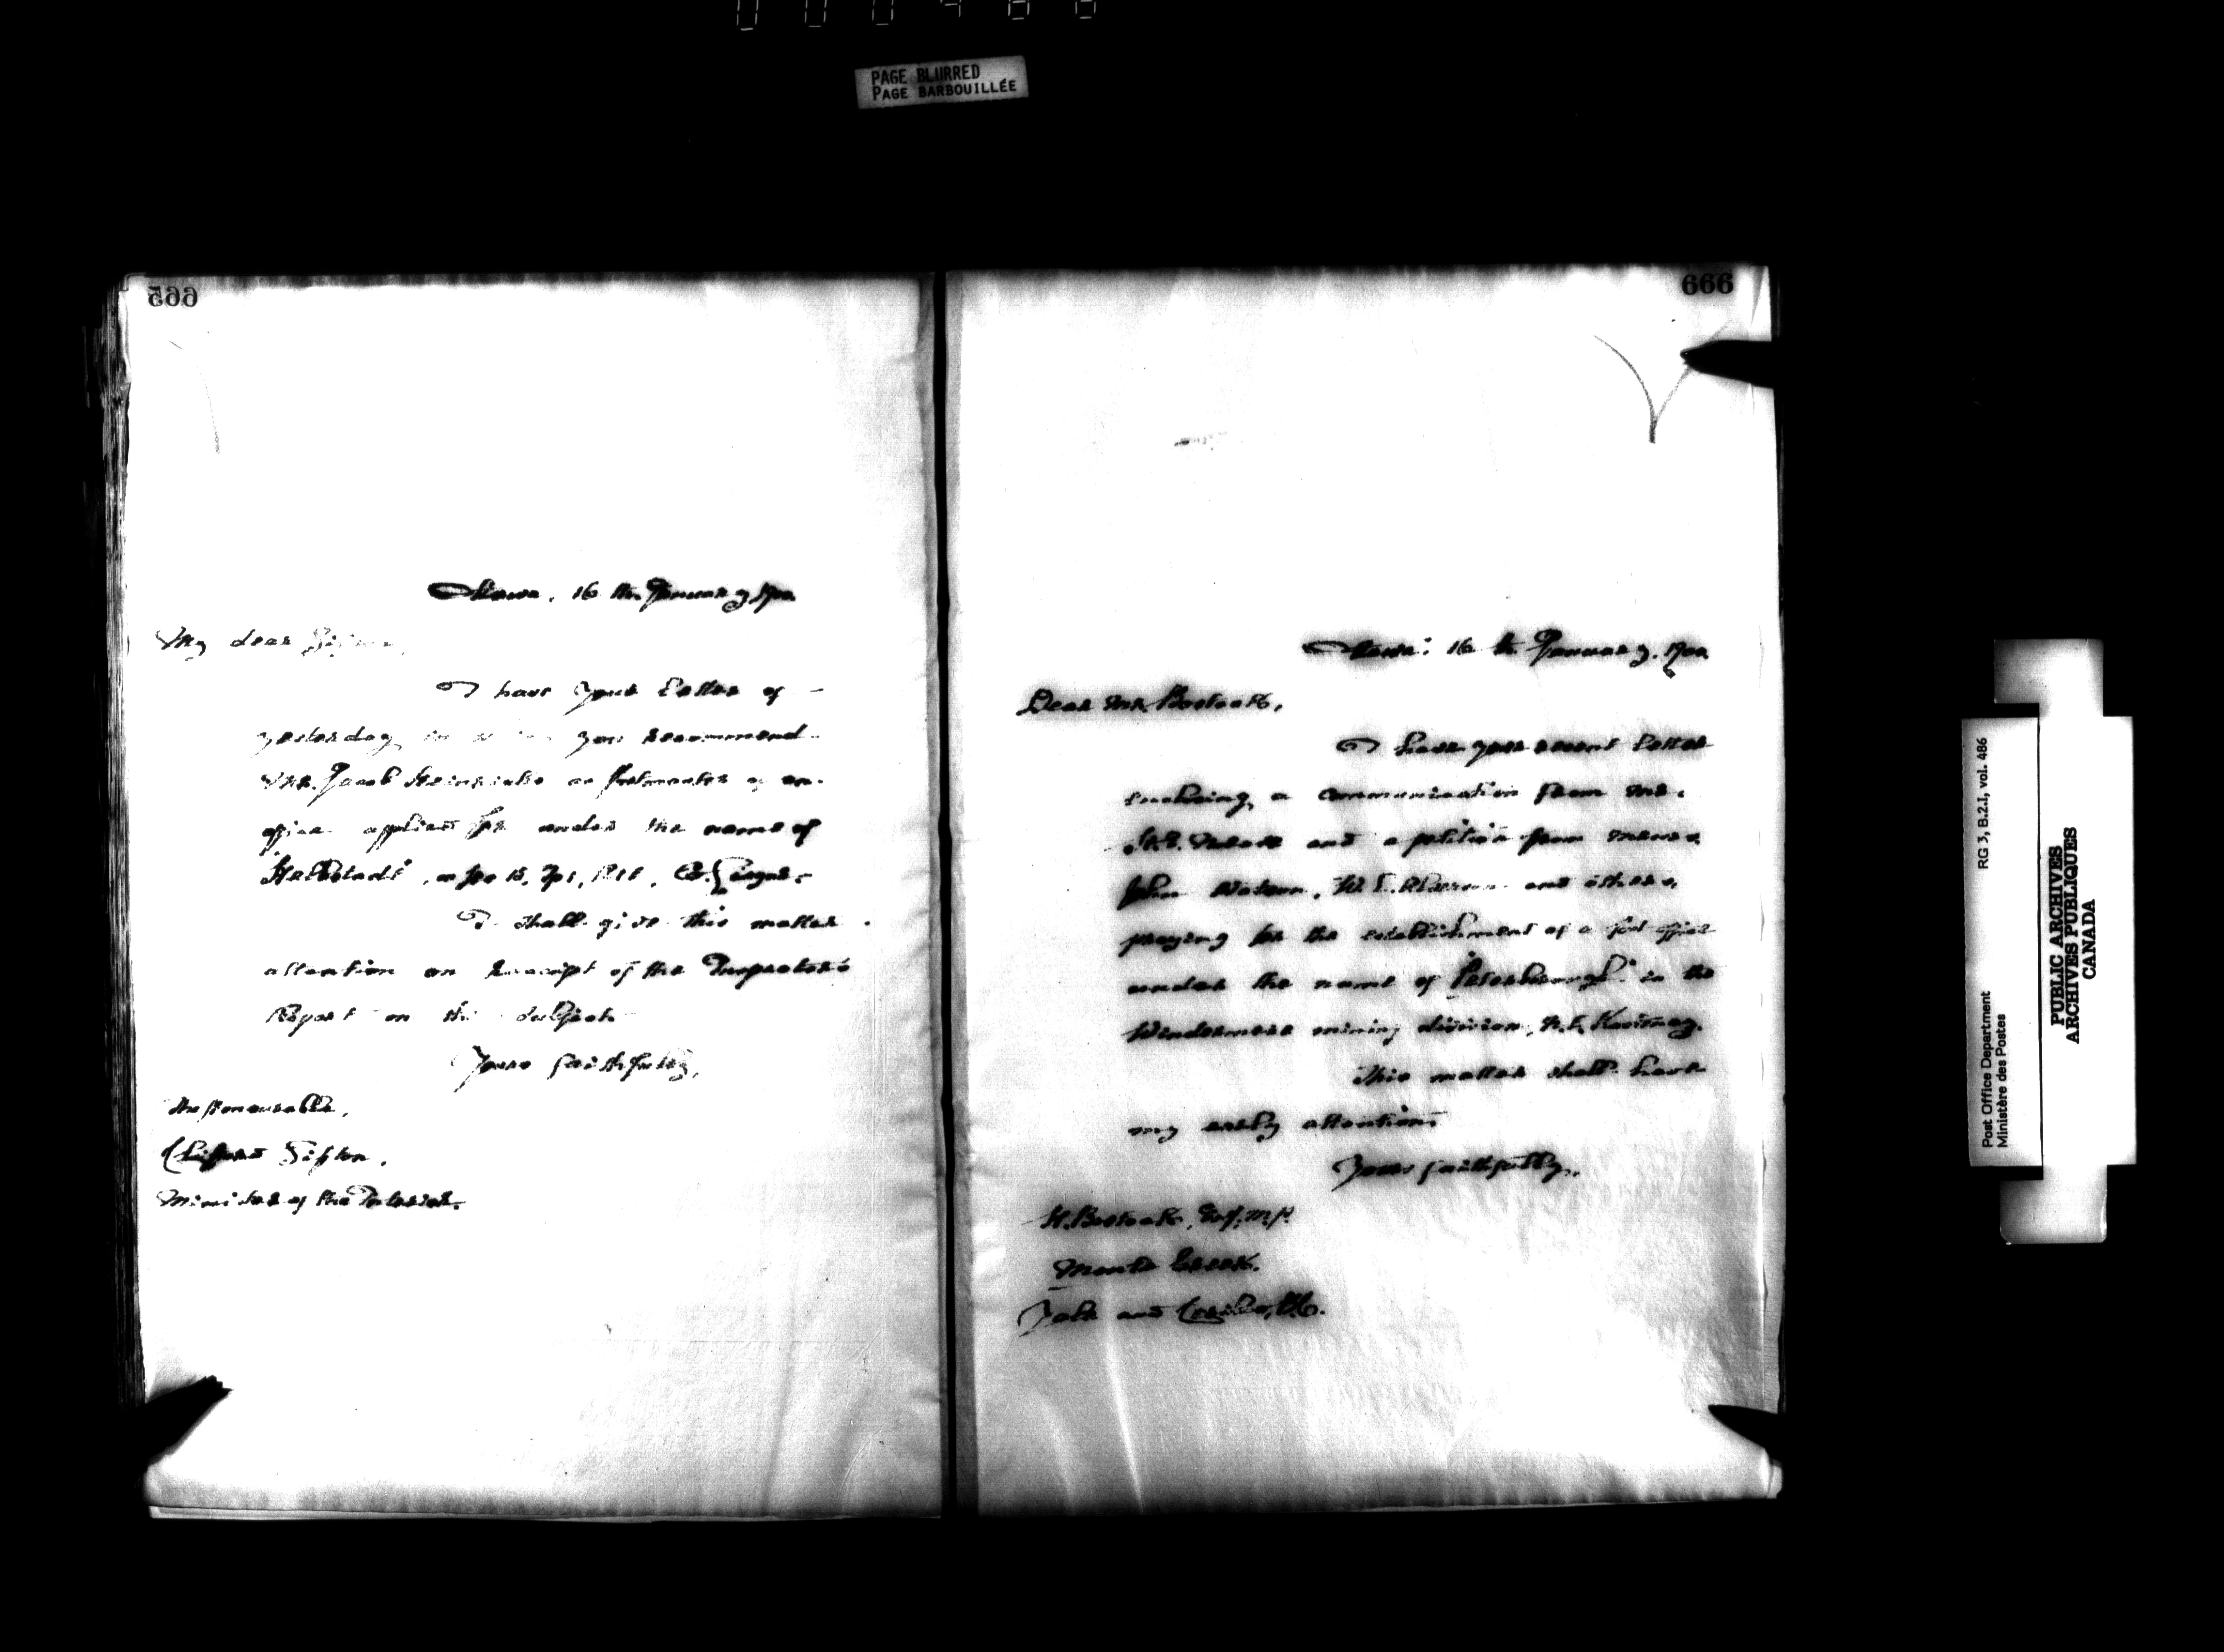 PAGE BLURRED
PAGE BARBOUILLÉE
665
Ottawa, 16th. January 1900
My dear
I have your letter of
yesterday, in you recommend
Mr. Jacob as Postmaster of an
office applied for under the name of
"Halbstadt", on Sec 15,
I shall give this matter
attention on receipt of the Inspector's
Report on the subject.
Yours faithfully,
The Honourable,
Clifford Sifton,
Minister of the Interior.
666
Ottawa: 16th. January. 1900
Dear Mr. Bostock,
I have your recent letter
enclosing a communication from Mr.
and a petition from Messrs.
John Watson, and others,
praying for the establishment of a post office
under the name of "Peterborough" in the
Windermere mining division, N.E. Kootenay.
This matter shall have
my early attention.
Yours faithfully,
H. Bostock, Esq. M.P.
Monte Creek.
Yale and Cariboo, B.C.
Post Office Department
Ministère des Postes
RG 3, B.2.I, vol. 486
PUBLIC ARCHIVES
ARCHIVES PUBLIQUES
CANADA